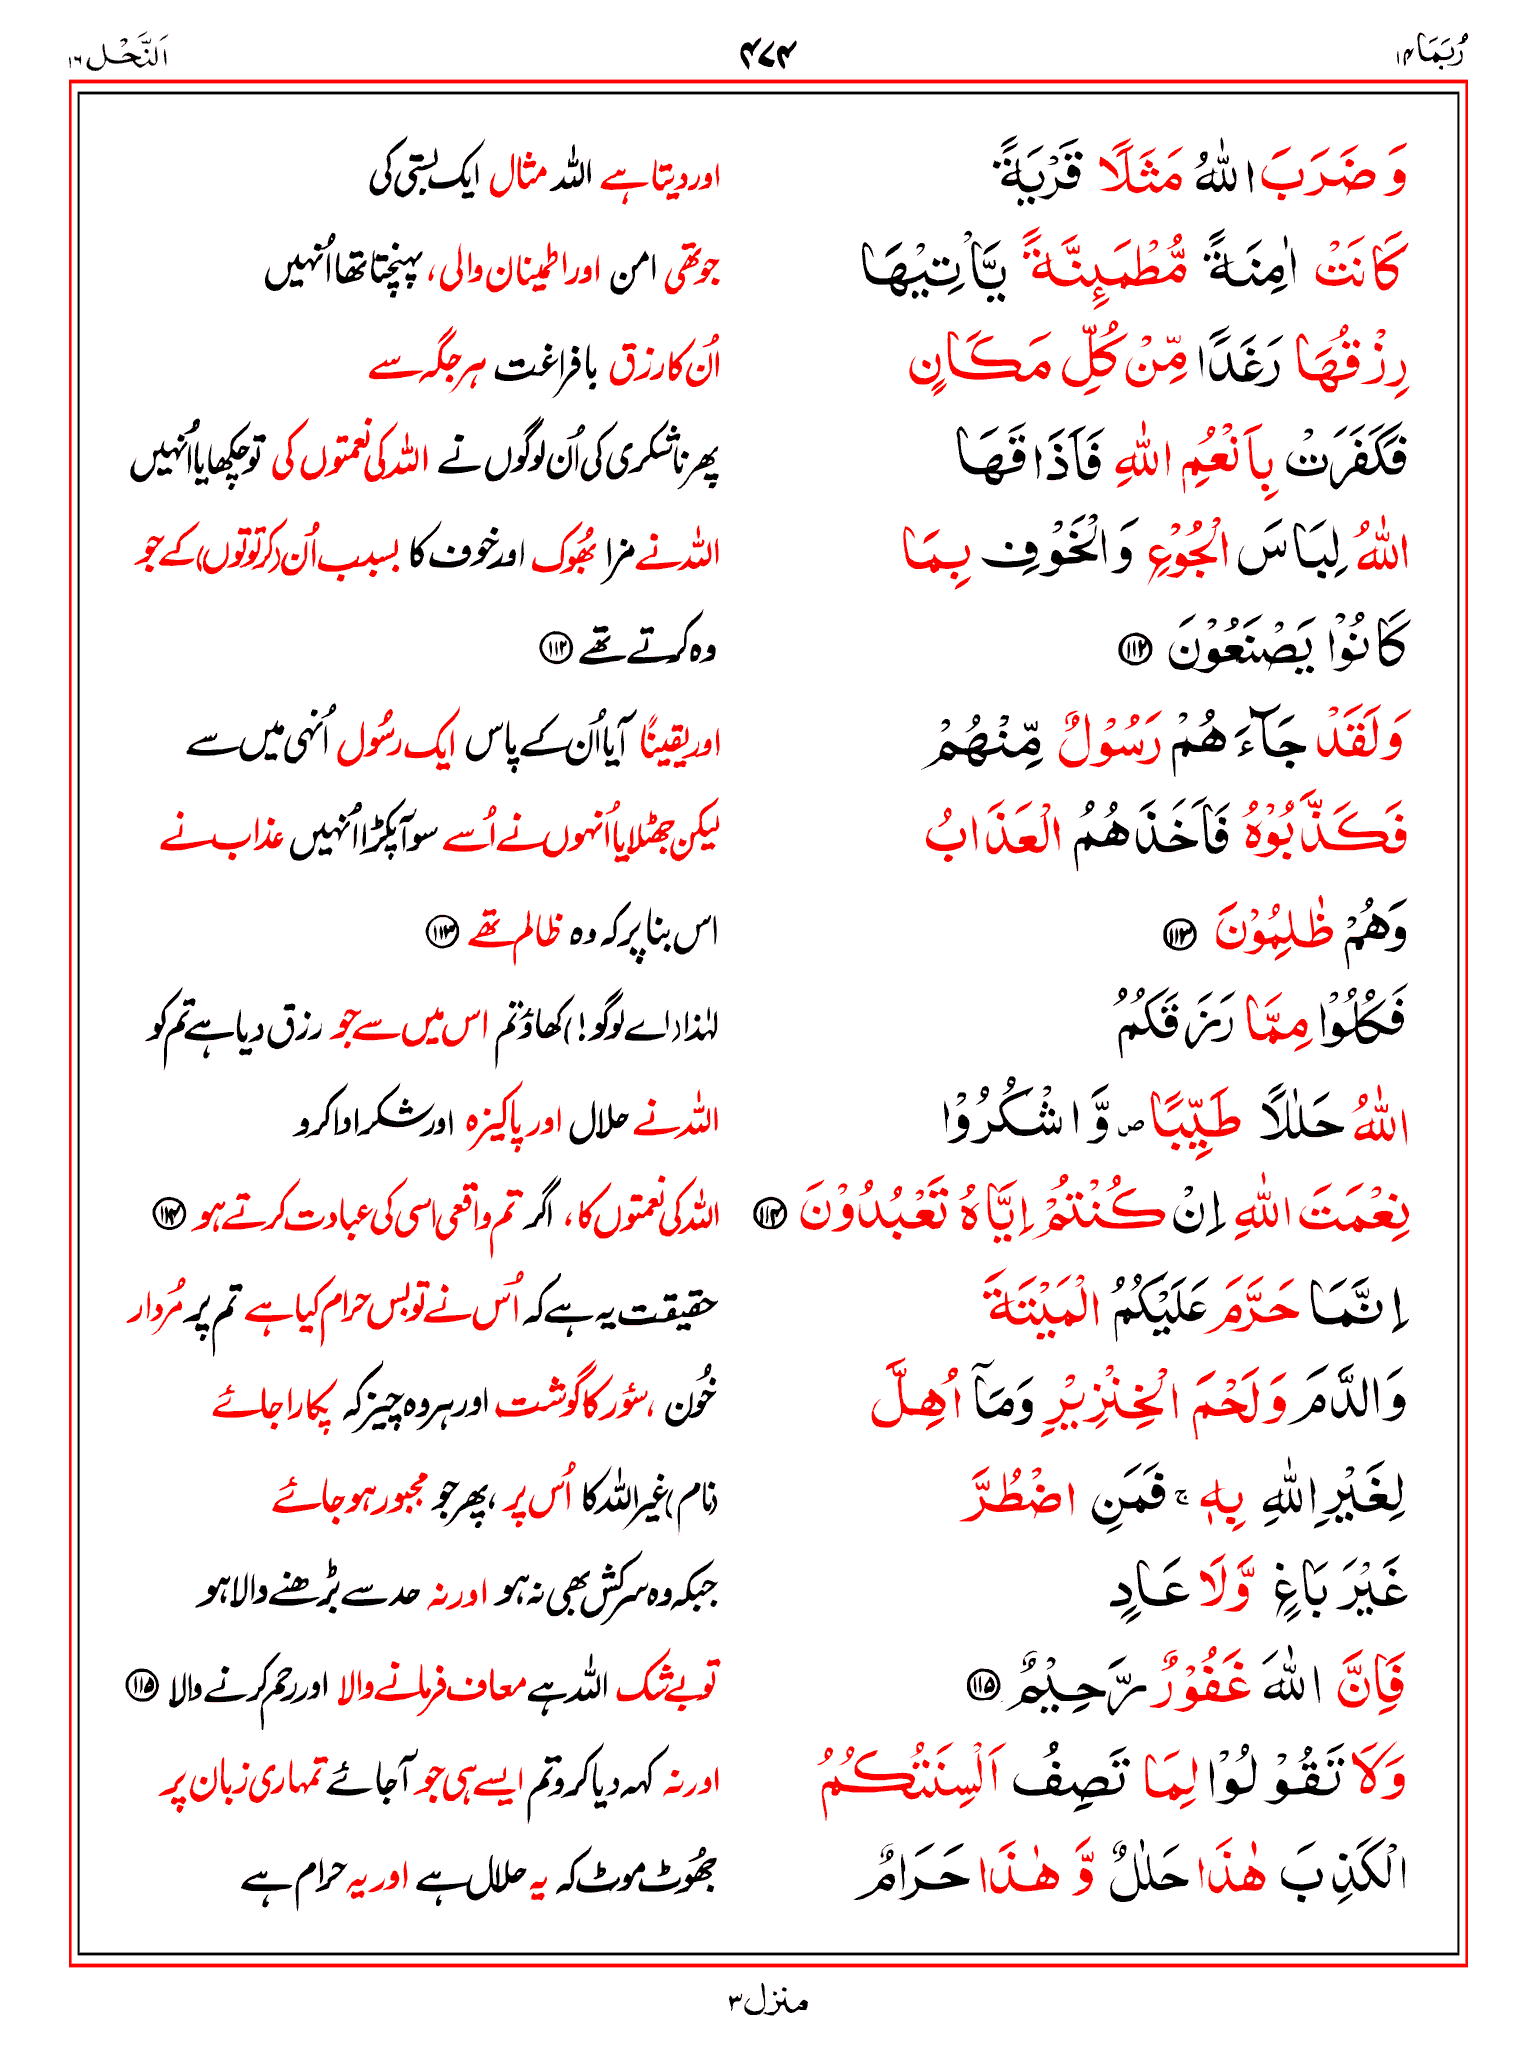 رُبَمَا ۱۴
۴۷۴
اَلنَّحْل ۱۶
وَ ضَرَبَ اللّٰهُ مَثَلًا قَرْيَةً
اور دیتا ہے اللہ مثال ایک بستی کی
كَانَتْ اٰمِنَةً مُّطْمَىِٕنَّةً يَّاْتِيْهَا
جو تھی امن اور اطمینان والی، پہنچتا تھا اُنہیں
رِزْقُهَا رَغَدًا مِّنْ كُلِّ مَكَانٍ
اُن کا رزق بافراغت ہر جگہ سے
فَكَفَرَتْ بِاَنْعُمِ اللّٰهِ فَاَذَاقَهَا
پھر ناشکری کی اُن لوگوں نے اللہ کی نعمتوں کی تو چکھایا اُنہیں
اللّٰهُ لِبَاسَ الْجُوْعِ وَ الْخَوْفِ بِمَا
اللہ نے مزا بھُوک اور خوف کا بسبب اُن (کرتوتوں) کے جو
كَانُوْا يَصْنَعُوْنَ ۝۱۱۲
وہ کرتے تھے ۝۱۱۲
وَ لَقَدْ جَآءَهُمْ رَسُوْلٌ مِّنْهُمْ
اور یقینًا آیا اُن کے پاس ایک رسُول اُنہی میں سے
فَكَذَّبُوْهُ فَاَخَذَهُمُ الْعَذَابُ
لیکن جھٹلایا اُنہوں نے اُسے سو آپکڑا اُنہیں عذاب نے
وَهُمْ ظٰلِمُوْنَ ۝۱۱۳
اس بنا پر کہ وہ ظالم تھے ۝۱۱۳
فَكُلُوْا مِمَّا رَزَقَكُمُ
لہٰذا (اے لوگو!) کھاؤ تم اس میں سے جو رزق دیا ہے تم کو
اللّٰهُ حَلٰلًا طَيِّبًا ۪ وَّ اشْكُرُوْا
اللہ نے حلال اور پاکیزہ اور شکر ادا کرو
نِعْمَتَ اللّٰهِ اِنْ كُنْتُمْ اِيَّاهُ تَعْبُدُوْنَ ۝۱۱۴
اللہ کی نعمتوں کا، اگر تم واقعی اسی کی عبادت کرتے ہو ۝۱۱۴
اِنَّمَا حَرَّمَ عَلَيْكُمُ الْمَيْتَةَ
حقیقت یہ ہے کہ اُس نے تو بس حرام کیا ہے تم پر مُردار
وَ الدَّمَ وَ لَحْمَ الْخِنْزِيْرِ وَ مَآ اُهِلَّ
خُون ،سؤر کا گوشت اور ہر وہ چیز کہ پکارا جائے
لِغَيْرِ اللّٰهِ بِهٖ ۚ فَمَنِ اضْطُرَّ
(نام) غیراللہ کا اُس پر ،پھر جو مجبور ہو جائے
غَيْرَ بَاغٍ وَّ لَا عَادٍ
جبکہ وہ سرکش بھی نہ ہو اور نہ حد سے بڑھنے والا ہو
فَاِنَّ اللّٰهَ غَفُوْرٌ رَّحِيْمٌ ۝۱۱۵
تو بے شک اللہ ہے معاف فرمانے والا اور رحم کرنے والا ۝۱۱۵
وَ لَا تَقُوْلُوْا لِمَا تَصِفُ اَلْسِنَتُكُمُ
اور نہ کہہ دیا کرو تم ایسے ہی جو آجائے تمہاری زبان پر
الْكَذِبَ هٰذَا حَلٰلٌ وَّ هٰذَا حَرَامٌ
جھُوٹ موٹ کہ یہ حلال ہے اور یہ حرام ہے
منزل ۳